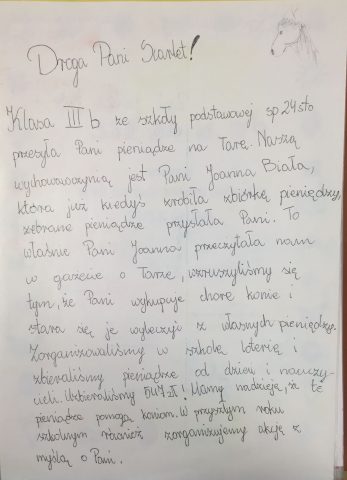 Droga Pani Scarlet!
Klasa III b ze szkoły podstawowej sp 24 sto
przesyła Pani pieniądze na Tarę. Naszą
wychowawczynią jest Pani Joanna Biała,
która już kiedyś zrobiła zbiórkę pieniędzy,
zebrane pieniądze przysłała Pani. To
właśnie Pani Joanna przeczytała nam
w gazecie o Tarze, wzruszyliśmy się
tym, że Pani wykupuje chore konie i
stara się je wyleczyć z własnych pieniędzy.
Zorganizowaliśmy w szkole loterię i
zbieraliśmy pieniądze od dzieci i nauczy-
cieli. Uzbieraliśmy zł! Mamy nadzieję, że te
pieniądze pomogą koniom. W przyszłym roku
szkolnym również zorganizujemy akcję z
myślą o Pani.